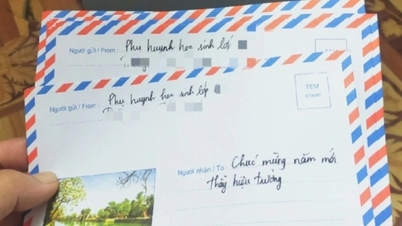 Người gửi / From : Phụ huynh học sinh lớp
Người gửi / From : Phụ huynh học sinh lớp
TEM
Người nhận / To : Chúc mừng năm mới
thầy hiệu trưởng